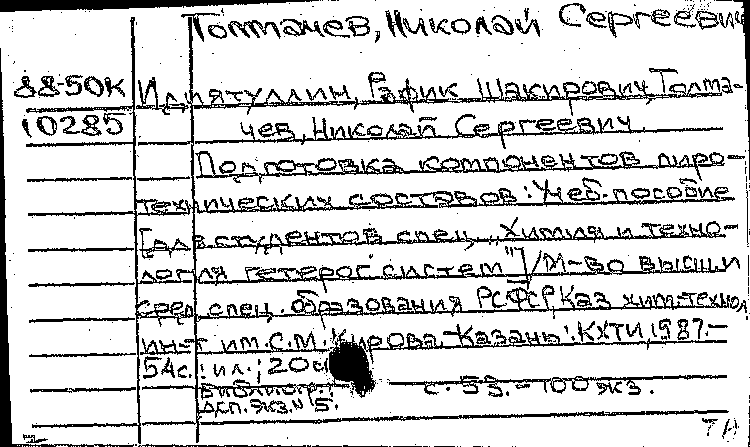 Толмачев, Николай Сергеевич
88-50К Идиятуллин, Рафик Шакирович, Толма-
10285 чев, Николай Сергеевич
Подготовка компонентов пиро-
технических составов: Учеб. пособие
[для студентов спец. „Химия и техно-
логия гетерог. систем"] / М-во высш и
сред. спец. образования РСФСР, Каз. хим.-технол
ин-т им. С.М. Кирова. - Казань: КХТИ, 1987. -
54с.: ил.; 20с
Библиогр.: с. 53. - 100 экз.
Деп. экз. N 5.